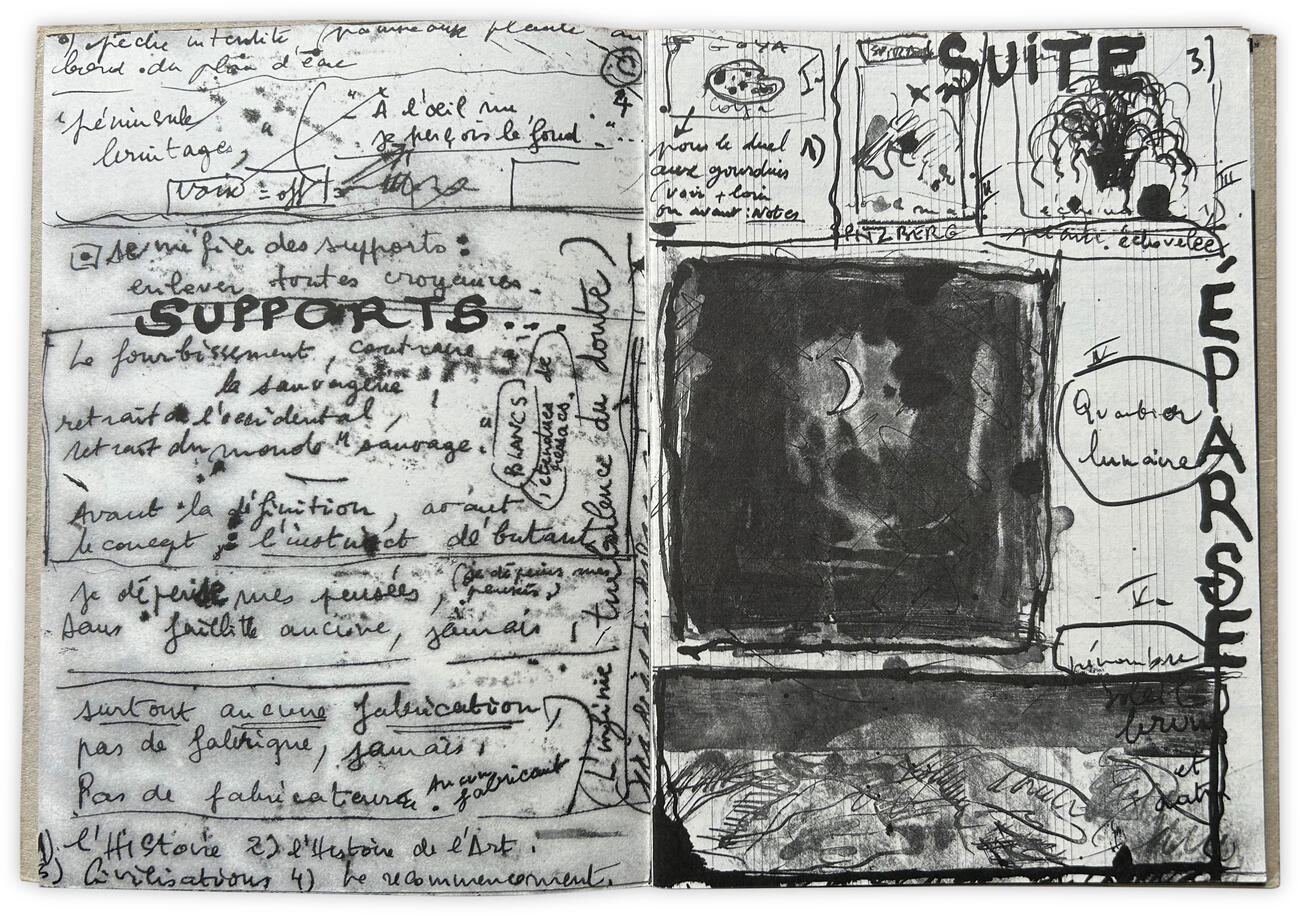 pêche interdite (panneaux plante au
bord du plan d'eau
4
"péninsule
hermitages,
À l'œil nu
je perçois le fond."...
voix = off
se méfier des supports :
enlever toutes croyances.
SUPPORTS...
Le fourbissement, contraire
la sauvagerie
retrait de l'occidental,
retrait du monde "sauvage."
BLANCS
l'étendue
de
Avant la définition, avant
le concept : l'instinct débutant
(L'infinie turbulence du doute)
Je dépeide mes pensées,
(je dépeins mes
pensées)
Sans faillite aucune, jamais !
surtout aucune fabrication,
pas de fabrique, jamais.
Pas de fabricateurs.
Aucun
fabricant
l'Histoire 2) l'Histoire de l'Art.
Civilisations 4) Le recommencement.
SUITE
3.)
GOYA
I-
Goya
pour le duel
aux gourdins
(voir + loin
ou avant : Notes
1)
II
SPITZBERG
III
échevelée
ÉPARSE
IV
Quartier
lunaire
V-
pénombre
brun
et